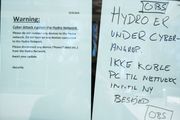 Warning:
Cyber Attack Against the Hydro Network.
Please do not connect any devices to the Hydro
Network. Do not turn on any devices connected
to the Hydro Network.
Please disconnect any device
from the Hydro Network.
Await new update
Security
OBS
HYDRO ER
UNDER CYBER-
ANGREP.
IKKE KOBLE
PC TIL NETTVERK
INNTIL NY
BESKJED
OBS